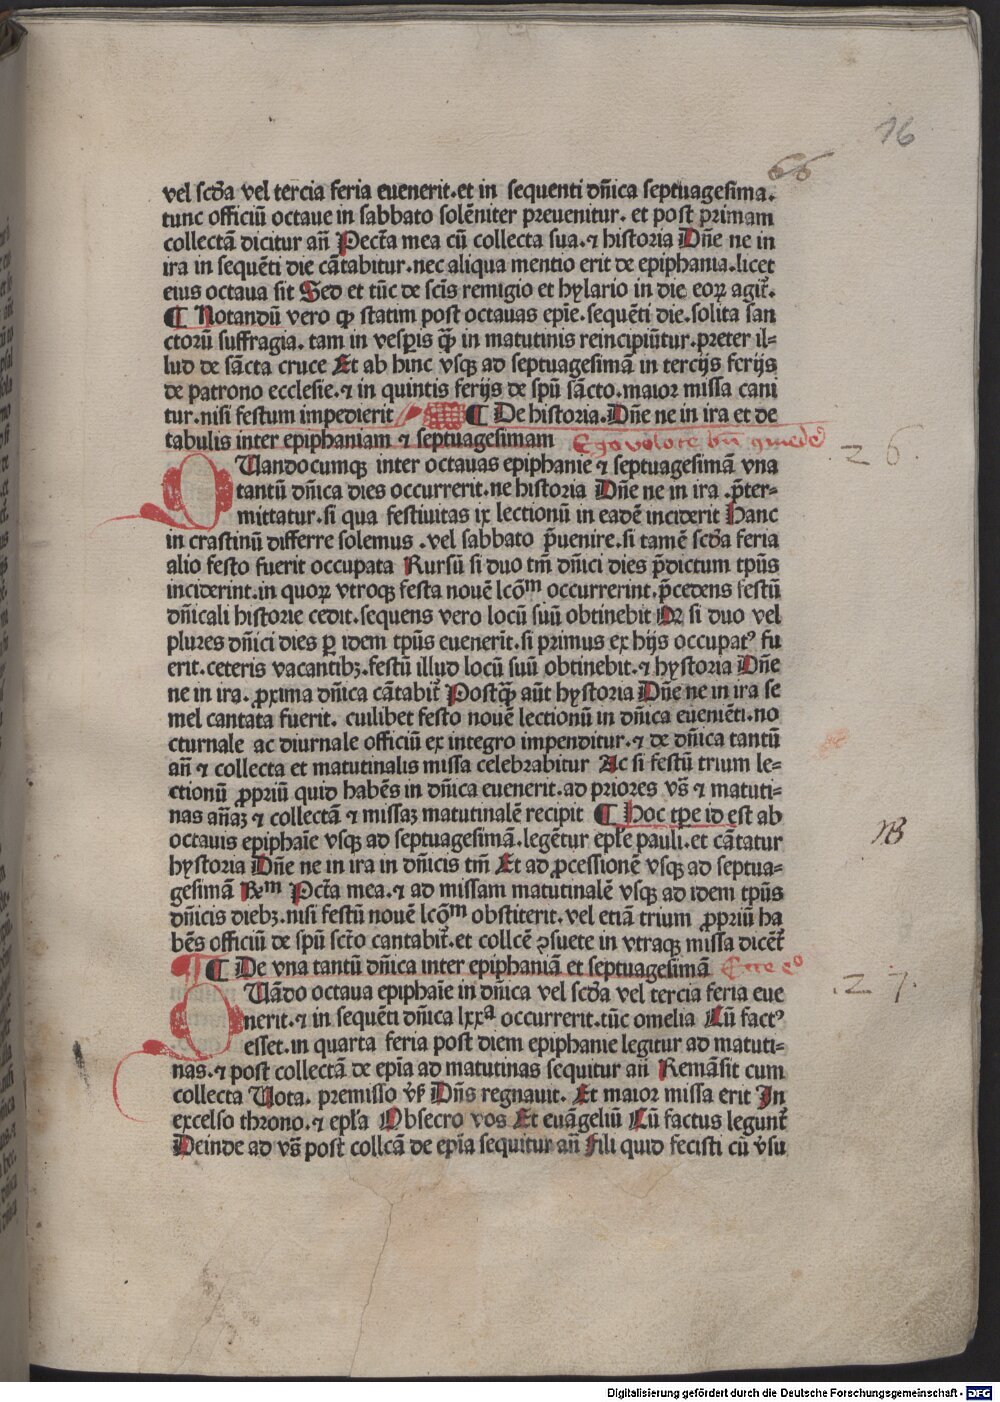 16
66
vel scďa vel tercia feria euenerit.et in sequenti dñica septuagesima.
tunc officiū octaue in sabbato solēniter preuenitur. et post primam
collectā dicitur añ Peccťa mea cū collecta sua.⁊ historia Dñe ne in
ira in sequēti die cātabitur.nec aliqua mentio erit de epiphania.licet
eius octaua sit Sed et tūc de scīs remigio et hylario in die eoꝝ agit̄.
¶ Notandū vero ꝙ statim post octauas epīe.sequēti die.solita san
ctorū suffragia. tam in vesꝑis q̄ꝫ in matutinis reincipiūtur.preter il⸗
lud de sācta cruce Et ab hinc vsqꝫ ad septuagesimā in tercijs ferijs
de patrono ecclesie.⁊ in quintis ferijs de spū sācto.maior missa cani
tur.nisi festum impedierit ¶ De historia.Dñe ne in ira et de
tabulis inter epiphaniam ⁊ septuagesimam
26.
QUandocumqꝫ inter octauas epiphanie ⁊ septuagesimā vna
tantū dñica dies occurrerit.ne historia Dñe ne in ira .p̄ter⸗
mittatur.si qua festiuitas ix lectionū in eadē inciderit Hanc
in crastinū differre solemus .vel sabbato p̄uenire.si tamē scďa feria
alio festo fuerit occupata Rursū si duo tm̄ dñici dies p̄dictum tp̄us
inciderint.in quoꝝ vtroqꝫ festa nouē lcōm occurrerint.p̄cedens festū
dñicali historie cedit.sequens vero locū suū obtinebit Qꝛ si duo vel
plures dñici dies ꝑ idem tp̄us euenerit.si primus ex hijs occupatꝰ fu
erit.ceteris vacantibꝫ.festū illud locū suū obtinebit.⁊ hystoria Dñe
ne in ira. ꝓxima dñica cātabit̄ Postq̄ꝫ aūt hystoria Dñe ne in ira se
mel cantata fuerit. cuilibet festo nouē lectionū in dñica eueniēti.no
cturnale ac diurnale officiū ex integro impenditur.⁊ de dñica tantū
añ ⁊ collecta et matutinalis missa celebrabitur Ac si festū trium le⸗
ctionū ꝓpriū quid habēs in dñica euenerit.ad priores vs̄ ⁊ matuti⸗
nas añaꝫ ⁊ collectā ⁊ missaꝫ matutinalē recipit ¶ Hoc tp̄e id est ab
NB
octauis epiphaīe vsqꝫ ad septuagesimā.legētur epl̄e pauli.et cātatur
hystoria Dñe ne in ira in dñicis tm̄ Et ad ꝓcessionē vsqꝫ ad septua⸗
gesimā R̄m Pccťa mea.⁊ ad missam matutinalē vsqꝫ ad idem tp̄us
dñicis diebꝫ.nisi festū nouē lcōm obstiterit.vel etiā trium ꝓpriū ha
bēs officiū de spū scťo cantabit̄.et collcē ꝯsuete in vtraqꝫ missa dicēt̄
¶ De vna tantū dñica inter epiphaniā et septuagesimā
27.
QUādo octaua epiphaīe in dñica vel scďa vel tercia feria eue
nerit.⁊ in sequēti dñica lxxa occurrerit.tūc omelia Cū factꝰ
esset.in quarta feria post diem epiphanie legitur ad matuti⸗
nas.⁊ post collectā de epīa ad matutinas sequitur añ Remāsit cum
collecta Uota. premisso v̄s Dñs regnauit. Et maior missa erit In
excelso throno.⁊ epl̄a Obsecro vos Et euāgeliū Cū factus legunt̄
Deinde ad vs̄ post collcā de epīa sequitur añ Fili quid fecisti cū v̄su
Digitalisierung gefördert durch die Deutsche Forschungsgemeinschaft - DFG